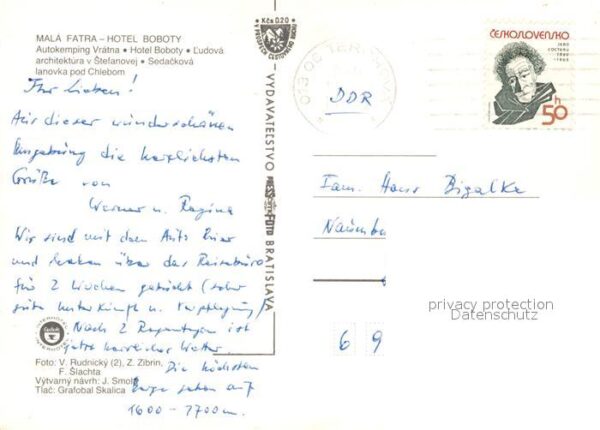 MALÁ FATRA – HOTEL BOBOTY
Autokemping Vrátna • Hotel Boboty • Ľudová
architektúra v Štefanovej • Sedačková
lanovka pod Chlebom
Kčs 0,20
PROSPECH CESTOVNÉHO RUCHU
VYDAVATEĽSTVO PRESSFOTO BRATISLAVA
ČESKOSLOVENSKO
JEAN
COCTEAU
1889
1963
50h
Ihr Lieben!
Aus dieser wunderschönen
Umgebung die herzlichsten
Grüße von
Werner u. Regina
Wir sind mit dem Auto hier
und haben über das Reisebüro
für 2 Wochen gebucht (sehr
gute Unterkunft u. Verpflegung)
Nach 2 Regentagen ist
jetzt herrliches Wetter.
Die höchsten
Berge gehen auf
1600 – 1700 m.
DDR
Fam. Hans Bigalke
Naumbu
privacy protection
Datenschutz
6 9
INTERHOTEL
Foto: V. Rudnický (2), Z. Zibrin,
F. Šlachta
Výtvarný návrh: J. Smol
Tlač: Grafobal Skalica